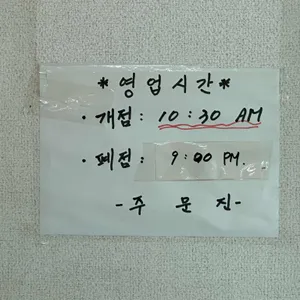 *영업시간*
· 개점: 10:30 AM
· 폐점: 9:00 PM.
- 주 문 진 -